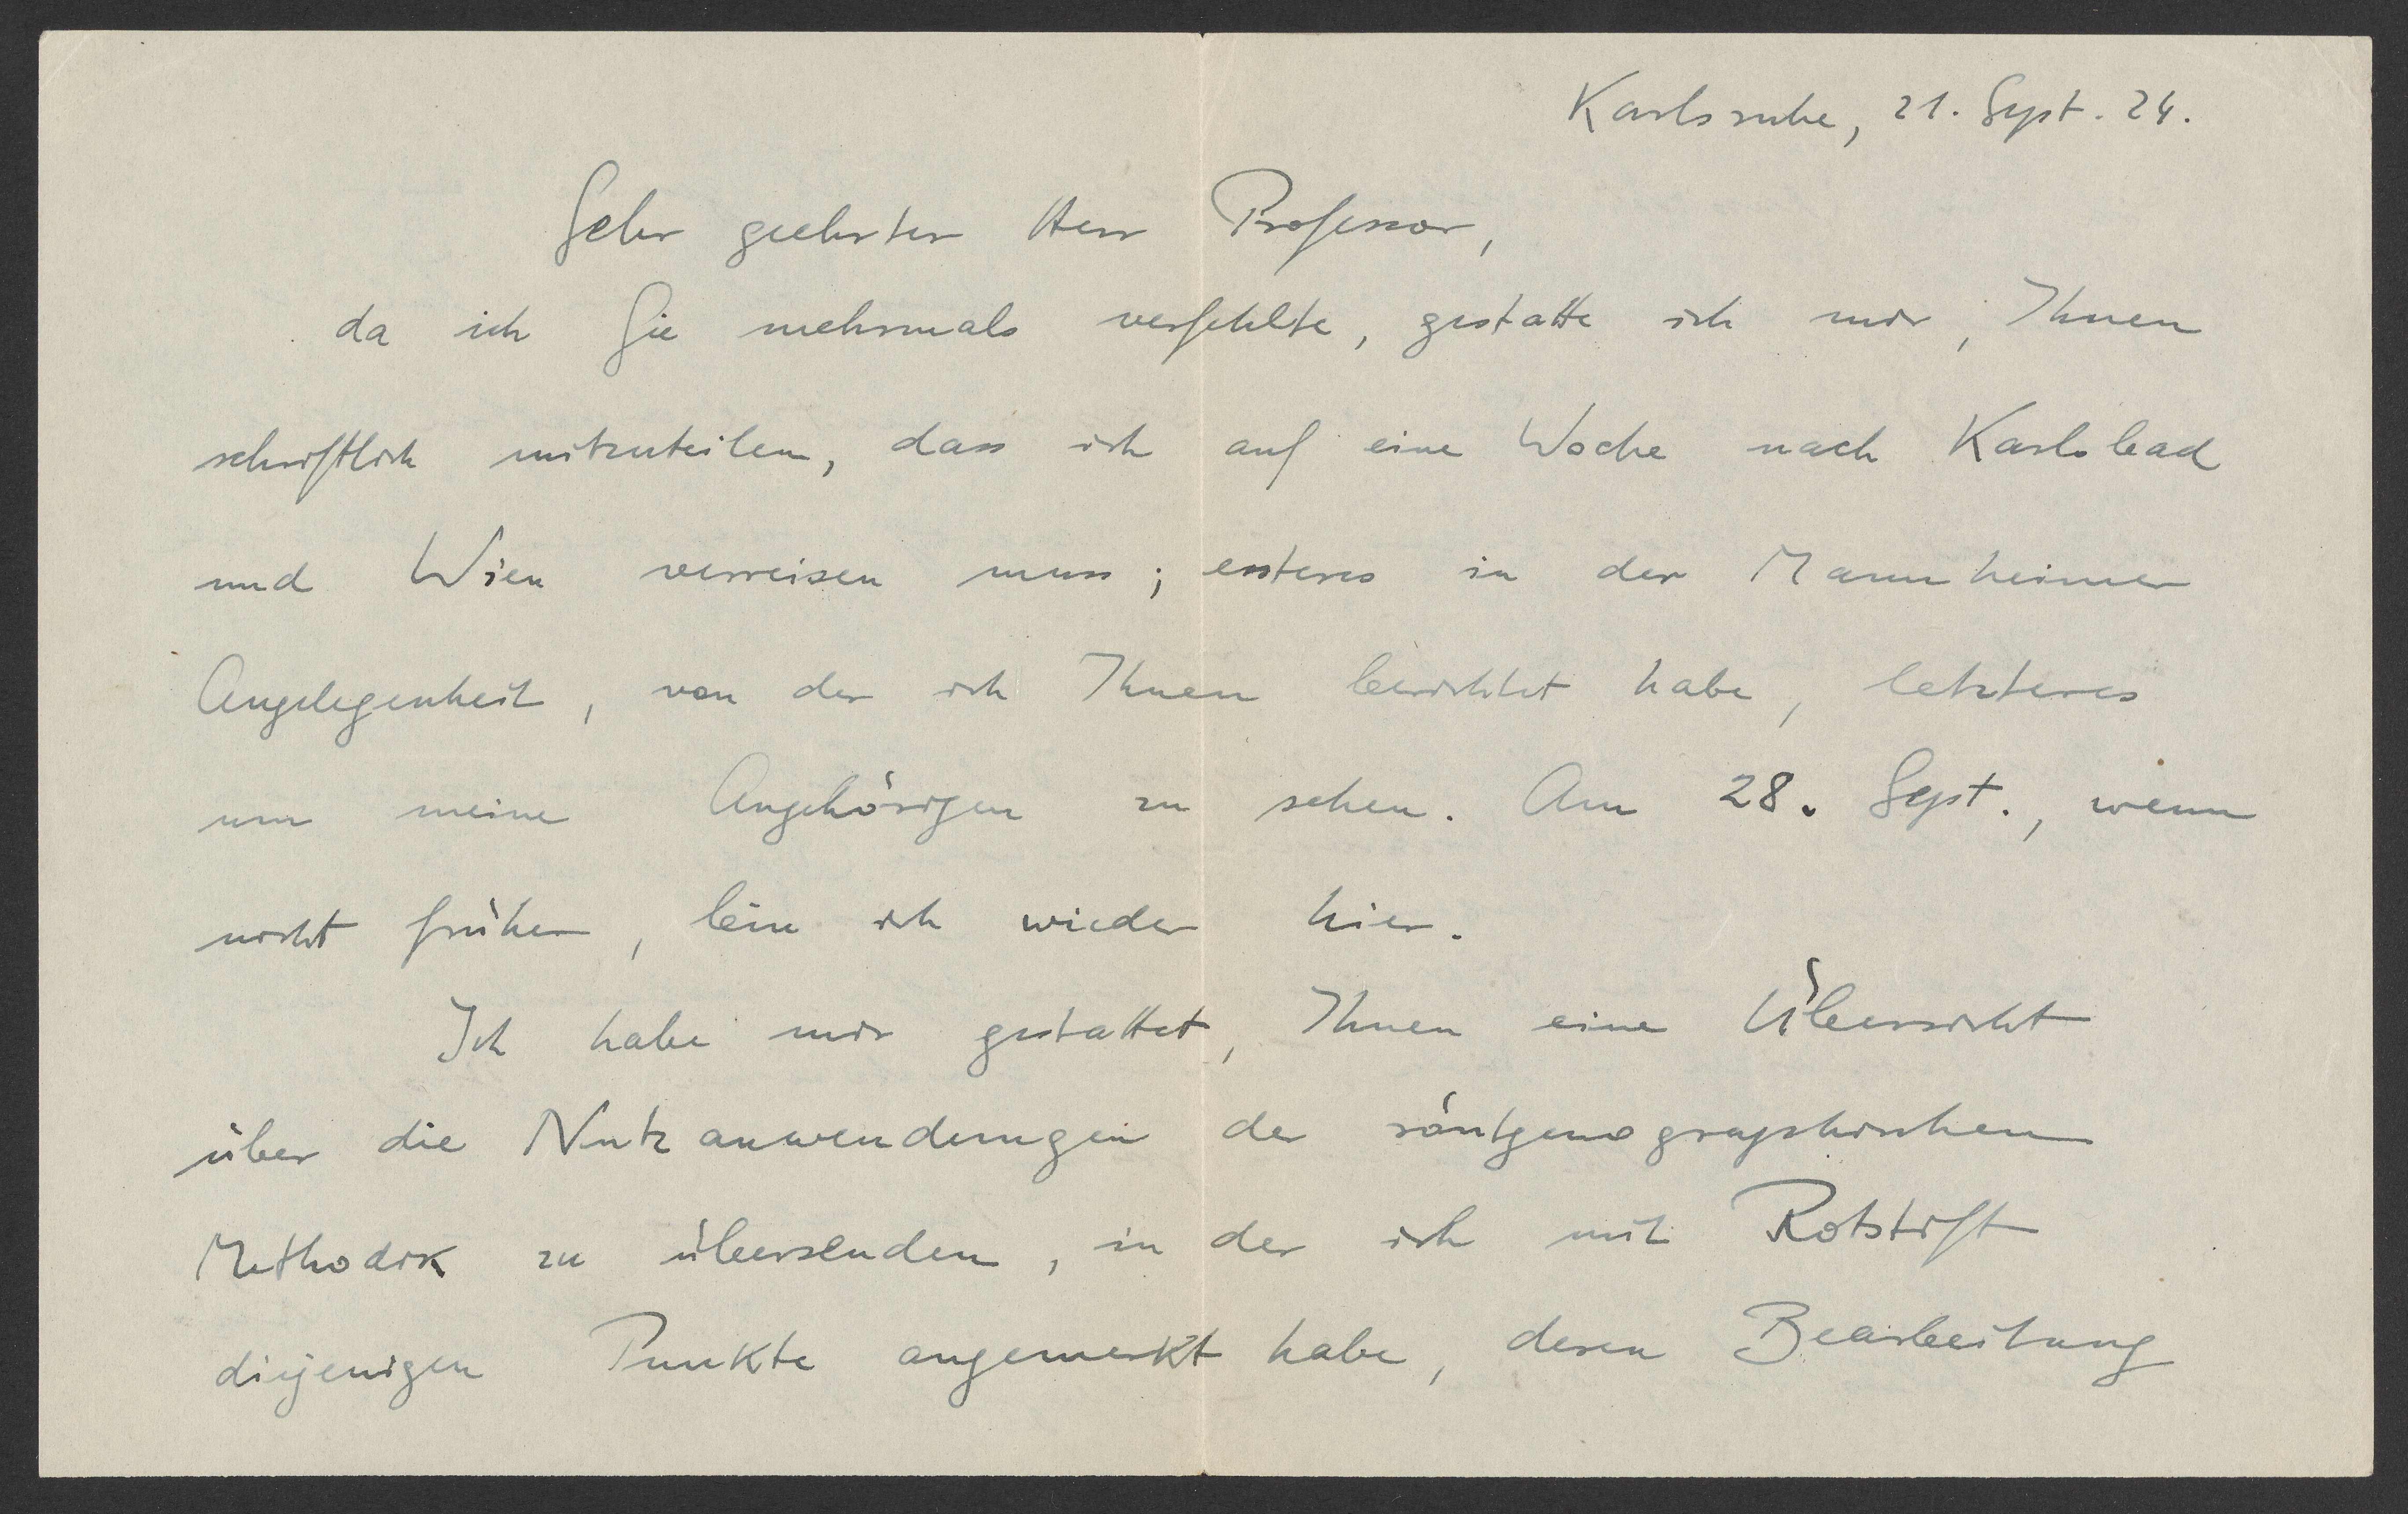 Karlsruhe, 21. Sept. 24.
Sehr geehrter Herr Professor,
da ich Sie mehrmals verfehlte, gestatte ich mir, Ihnen
schriftlich mitzuteilen, dass ich auf eine Woche nach Karlsbad
und Wien verreisen muss; ersteres in der Mannheimer
Angelegenheit, von der ich Ihnen berichtet habe, letzteres
um meine Angehörigen zu sehen. Am 28. Sept., wenn
nicht früher, bin ich wieder hier.
Ich habe mir gestattet, Ihnen eine Übersicht
über die Nutzanwendungen der röntgenographischen
Methodik zu übersenden, in der ich mit Rotstift
diejenigen Punkte angemerkt habe, deren Bearbeitung